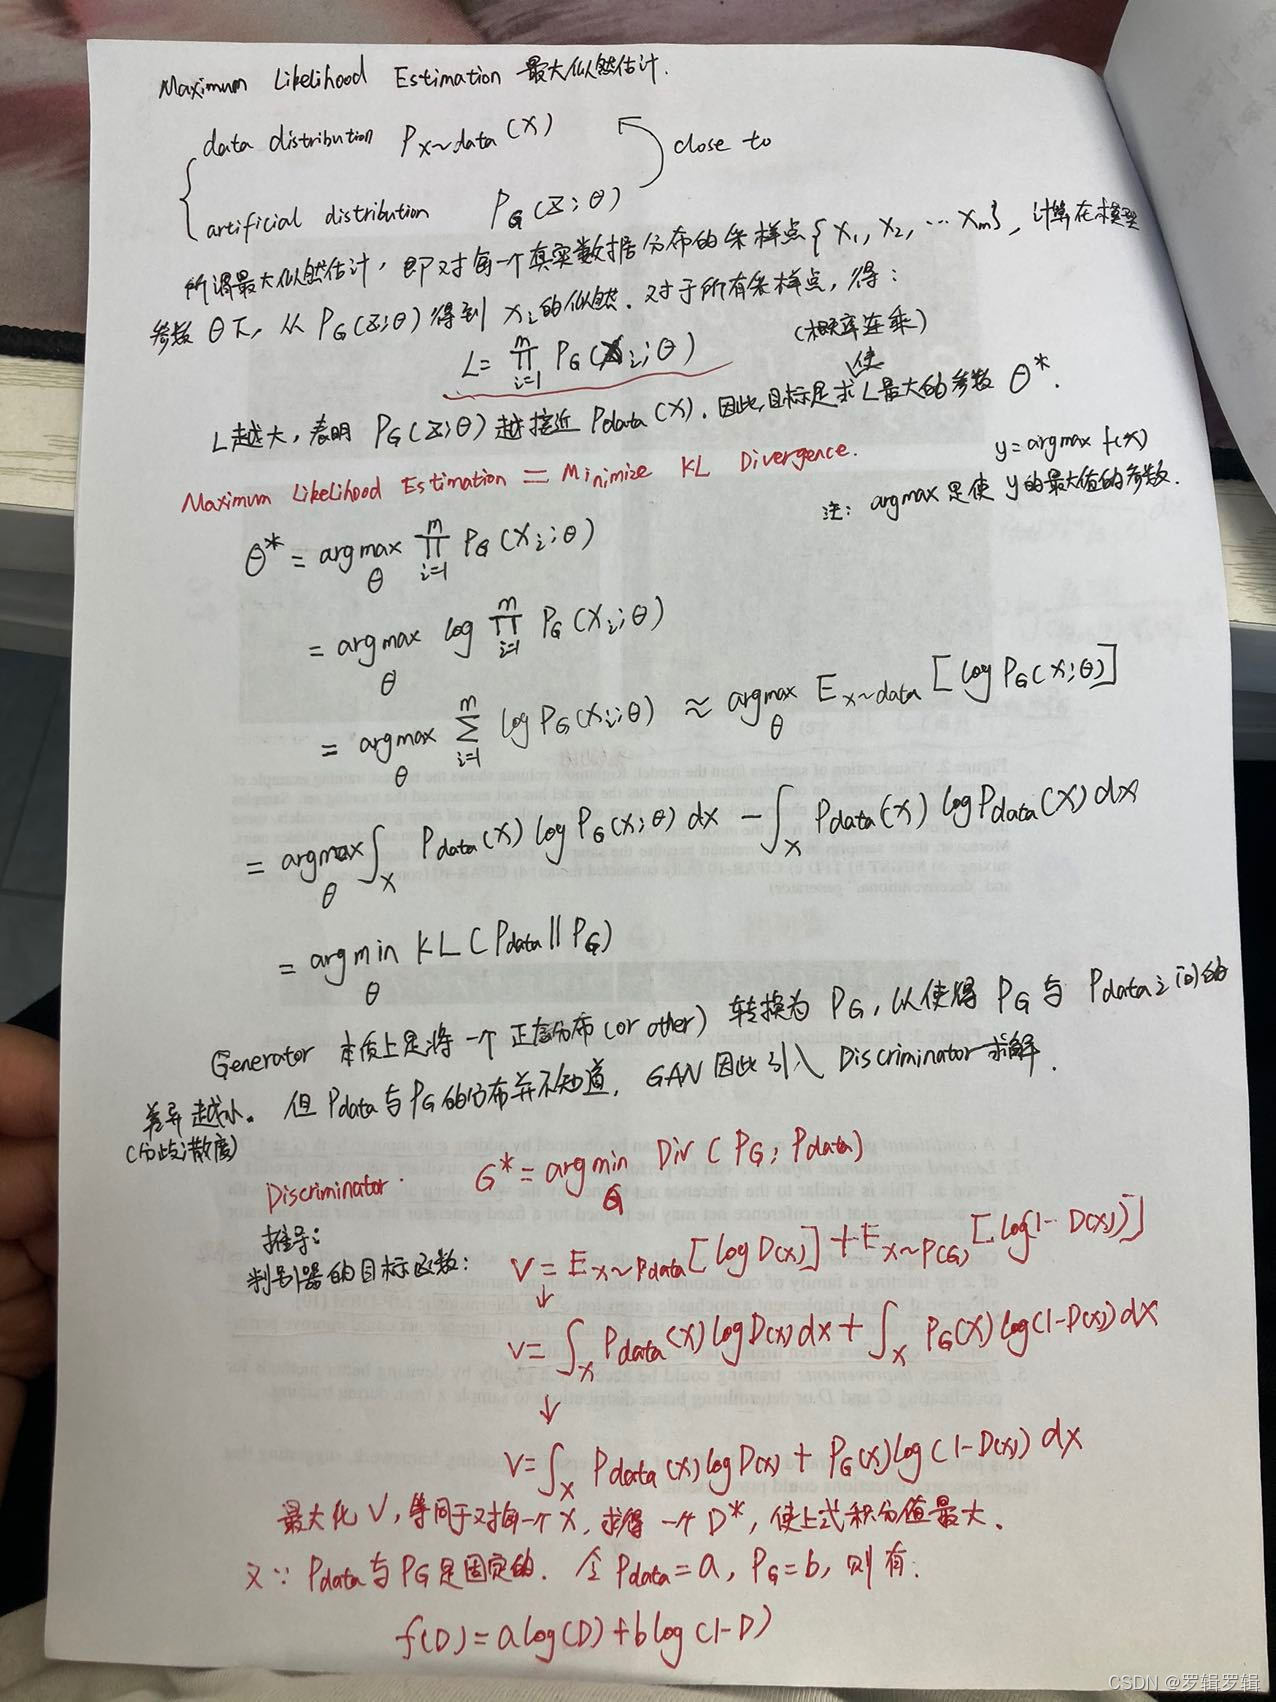 Maximum Likelihood Estimation 最大似然估计.
data distribution P_{x~data}(x)
close to
artificial distribution P_G(z;θ)
所谓最大似然估计，即对每一个真实数据分布的采样点{x_1, x_2, ··· x_m}，计算在模型
参数θ下，从P_G(z;θ)得到x_i的似然. 对于所有采样点，得：
L = ∏_{i=1}^{m} P_G(x_i;θ) (概率连乘)
使
L越大，表明P_G(z;θ)越接近P_data(x). 因此,目标是求L最大的参数θ*.
Maximum Likelihood Estimation = Minimize KL Divergence.
y = argmax f(x)
注：argmax是使y的最大值的参数.
θ* = argmax_θ ∏_{i=1}^{m} P_G(x_i;θ)
= argmax_θ log ∏_{i=1}^{m} P_G(x_i;θ)
= argmax_θ ∑_{i=1}^{m} log P_G(x_i;θ) ≈ argmax_θ E_{x~data}[log P_G(x;θ)]
= argmax_θ ∫_x P_data(x) log P_G(x;θ) dx − ∫_x P_data(x) log P_data(x) dx
= argmin_θ KL(P_data||P_G)
Generator 本质上是将一个正态分布(or other) 转换为P_G, 以使得P_G与P_data之间的
差异越小。但P_data与P_G的分布并不知道，GAN因此引入Discriminator求解.
(分歧;散度)
Discriminator. G* = argmin_G Div(P_G, P_data)
推导：
判别器的目标函数： V = E_{x~Pdata}[log D(x)] + E_{x~P(G)}[log(1-D(x))]
↓
V = ∫_x P_data(x) log D(x) dx + ∫_x P_G(x) log(1-D(x)) dx
↓
V = ∫_x P_data(x) log D(x) + P_G(x) log(1-D(x)) dx
最大化V, 等同于对每一个x, 求得一个D*, 使上式积分值最大.
又∵ P_data与P_G是固定的. 令P_data = a, P_G = b, 则有:
f(D) = a log(D) + b log(1-D)
CSDN @罗辑罗辑